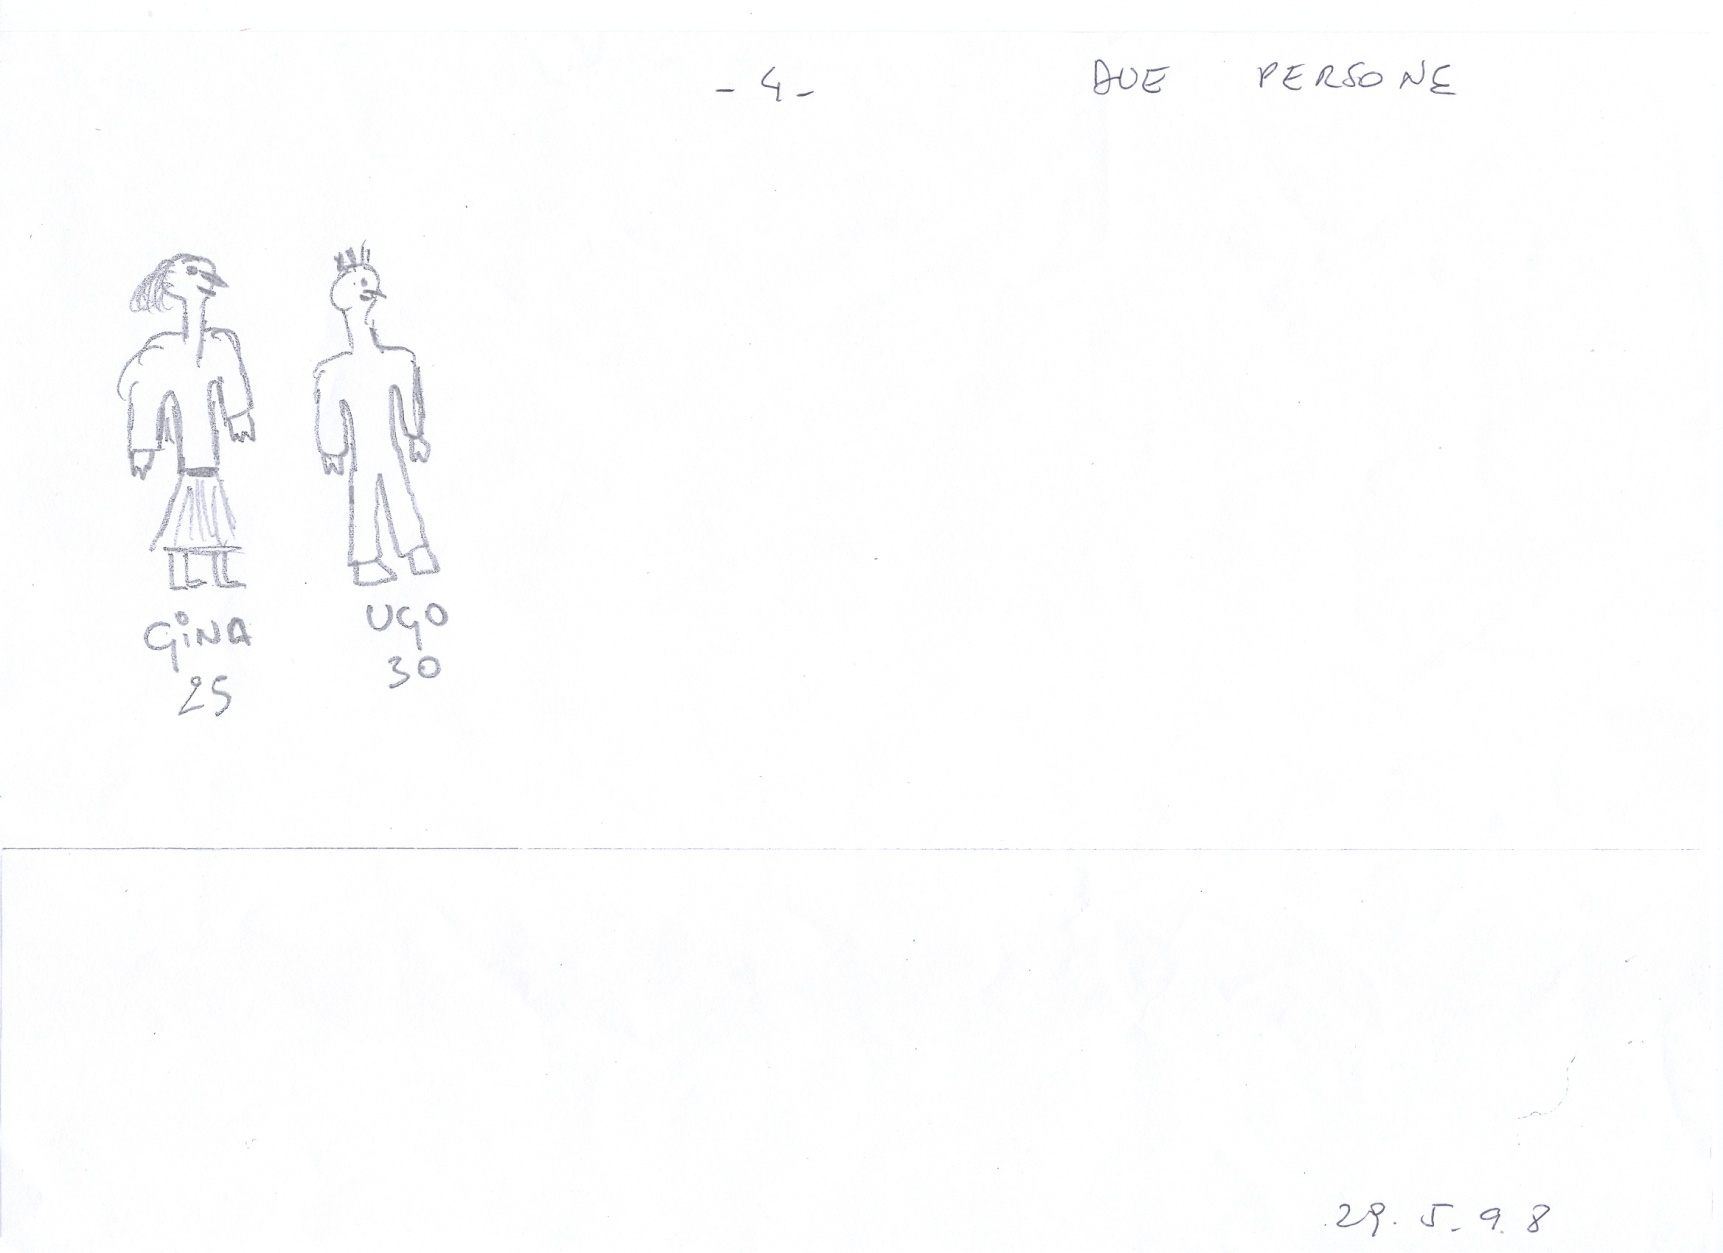 - 4 -
DUE PERSONE
GiNA
25
UGO
30
29.5.98